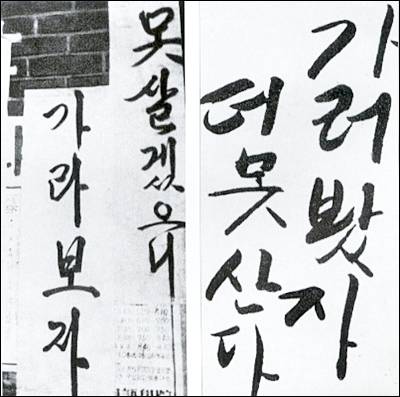 못살겠으니
가라보자
가러봣자
더못산다